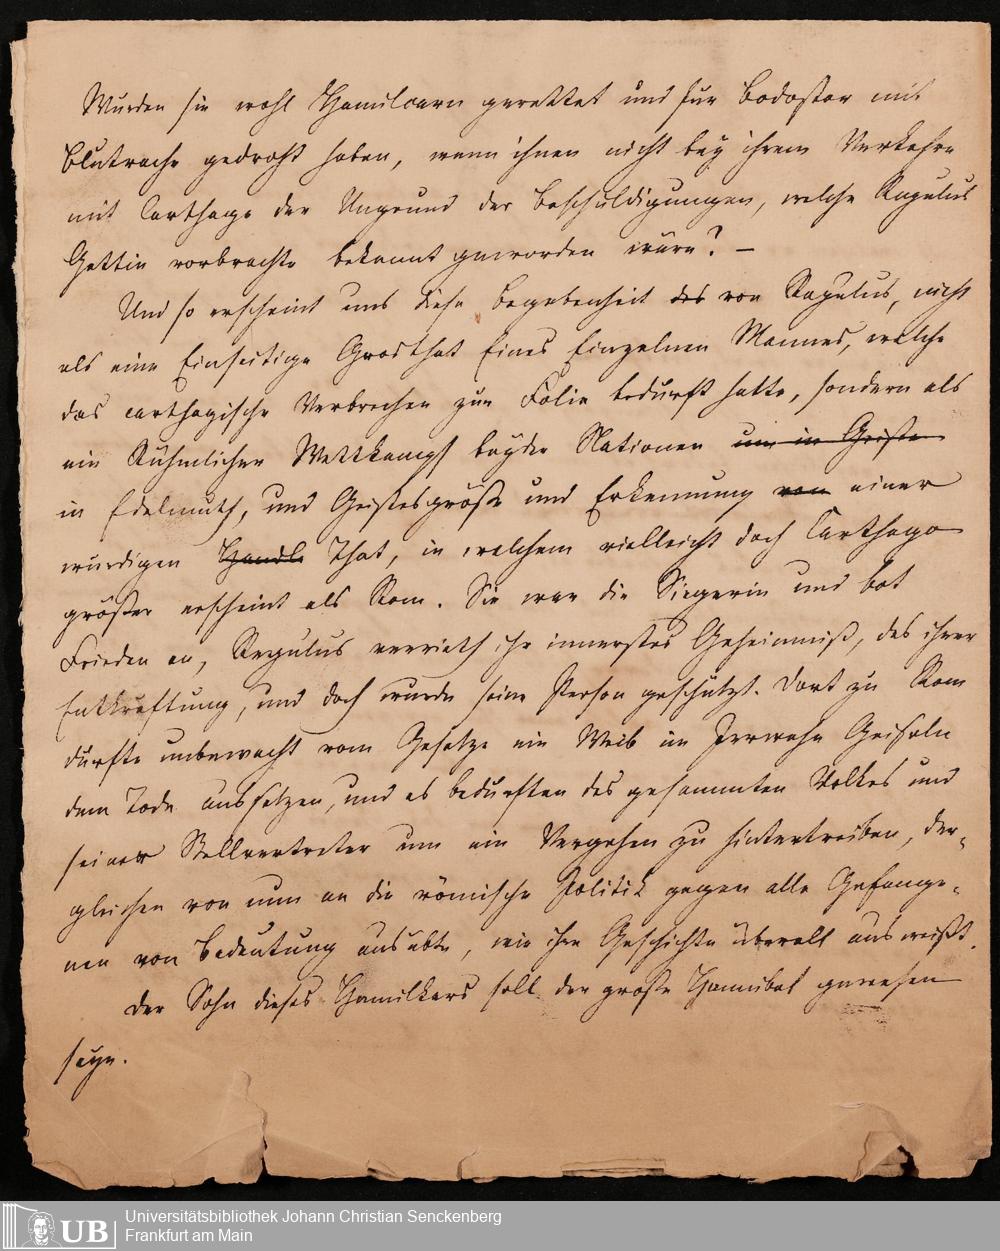 Wurden sie wohl Hamilcarn gerettet und für Bodostor mit
Blutrache gedroht haben, wenn ihnen nicht bey ihrem Verkehre
mit Carthago der Ungrund der Beschuldigungen, welche Regulus
Gattin vorbrachte bekannt geworden wäre? —
Und so erscheint uns diese Begebenheit des von Regulus, nicht
als eine Einseitige Grosthat Eines Einzelnen Mannes, welche
das carthagische Verbrechen zur Folie bedurft hatte, sondern als
ein Rühmlicher Wettkampf beyder Nationen um in Geiste
in Edelmuth, und Geistesgröße und Erkennung von einer
würdigen Handl That, in welchem vielleicht doch Carthago
größer erscheint als Rom. Sie war die Siegerin und bot
Frieden an, Regulus verrieth ihr innerstes Geheimniß, das ihrer
Entkräftung, und doch wurde seine Person geschützt. Dort zu Rom
durfte unbewacht vom Gesetze ein Weib im Irrwahn Geiseln
dem Tode aussetzen, und es bedurften des gesammten Volkes und
seiner Stellvertreter um ein Vergehen zu hintertreiben, der-
gleichen von nun an die römische Politik gegen alle Gefange-
nen von Bedeutung ausübte, wie ihre Geschichte überall ausweißt.
Der Sohn dieses Hamilkars soll der große Hannibal gewesen
seyn.
UB
Universitätsbibliothek Johann Christian Senckenberg
Frankfurt am Main